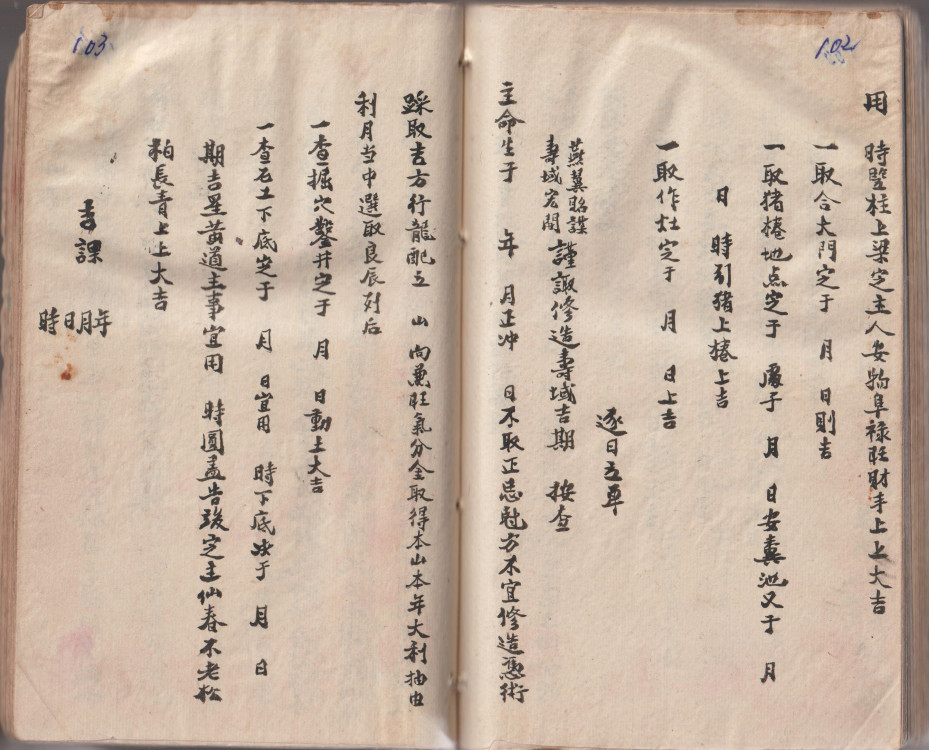 102
用 時竪柱上梁定主人安物阜祿旺財丰上上大吉
一取合大門定于 月 日則吉
一取猪椿地点定于 處于 月 日安糞池又于 月
日 時引猪上椿上吉
一取作灶定于 月 日上吉
逐日立単
燕翼貽謀
壽域宏開 謹諏修造壽域吉期 按查
主命生于 年 月正冲 日不取正忌 方不宜修造憑術
103
踩取吉方行龍配立 山 向兼旺氣分金取得本山本年大利抽由
利月当中選取良辰列后
一查掘穴鑿井定于 月 日動土大吉
一查石工下底定于 月 日宜用 時下底决于 月 日
期吉星黄道主事宜用 時圓 告竣定主仙春不老松
柏長青上上大吉
吉課
年月日時